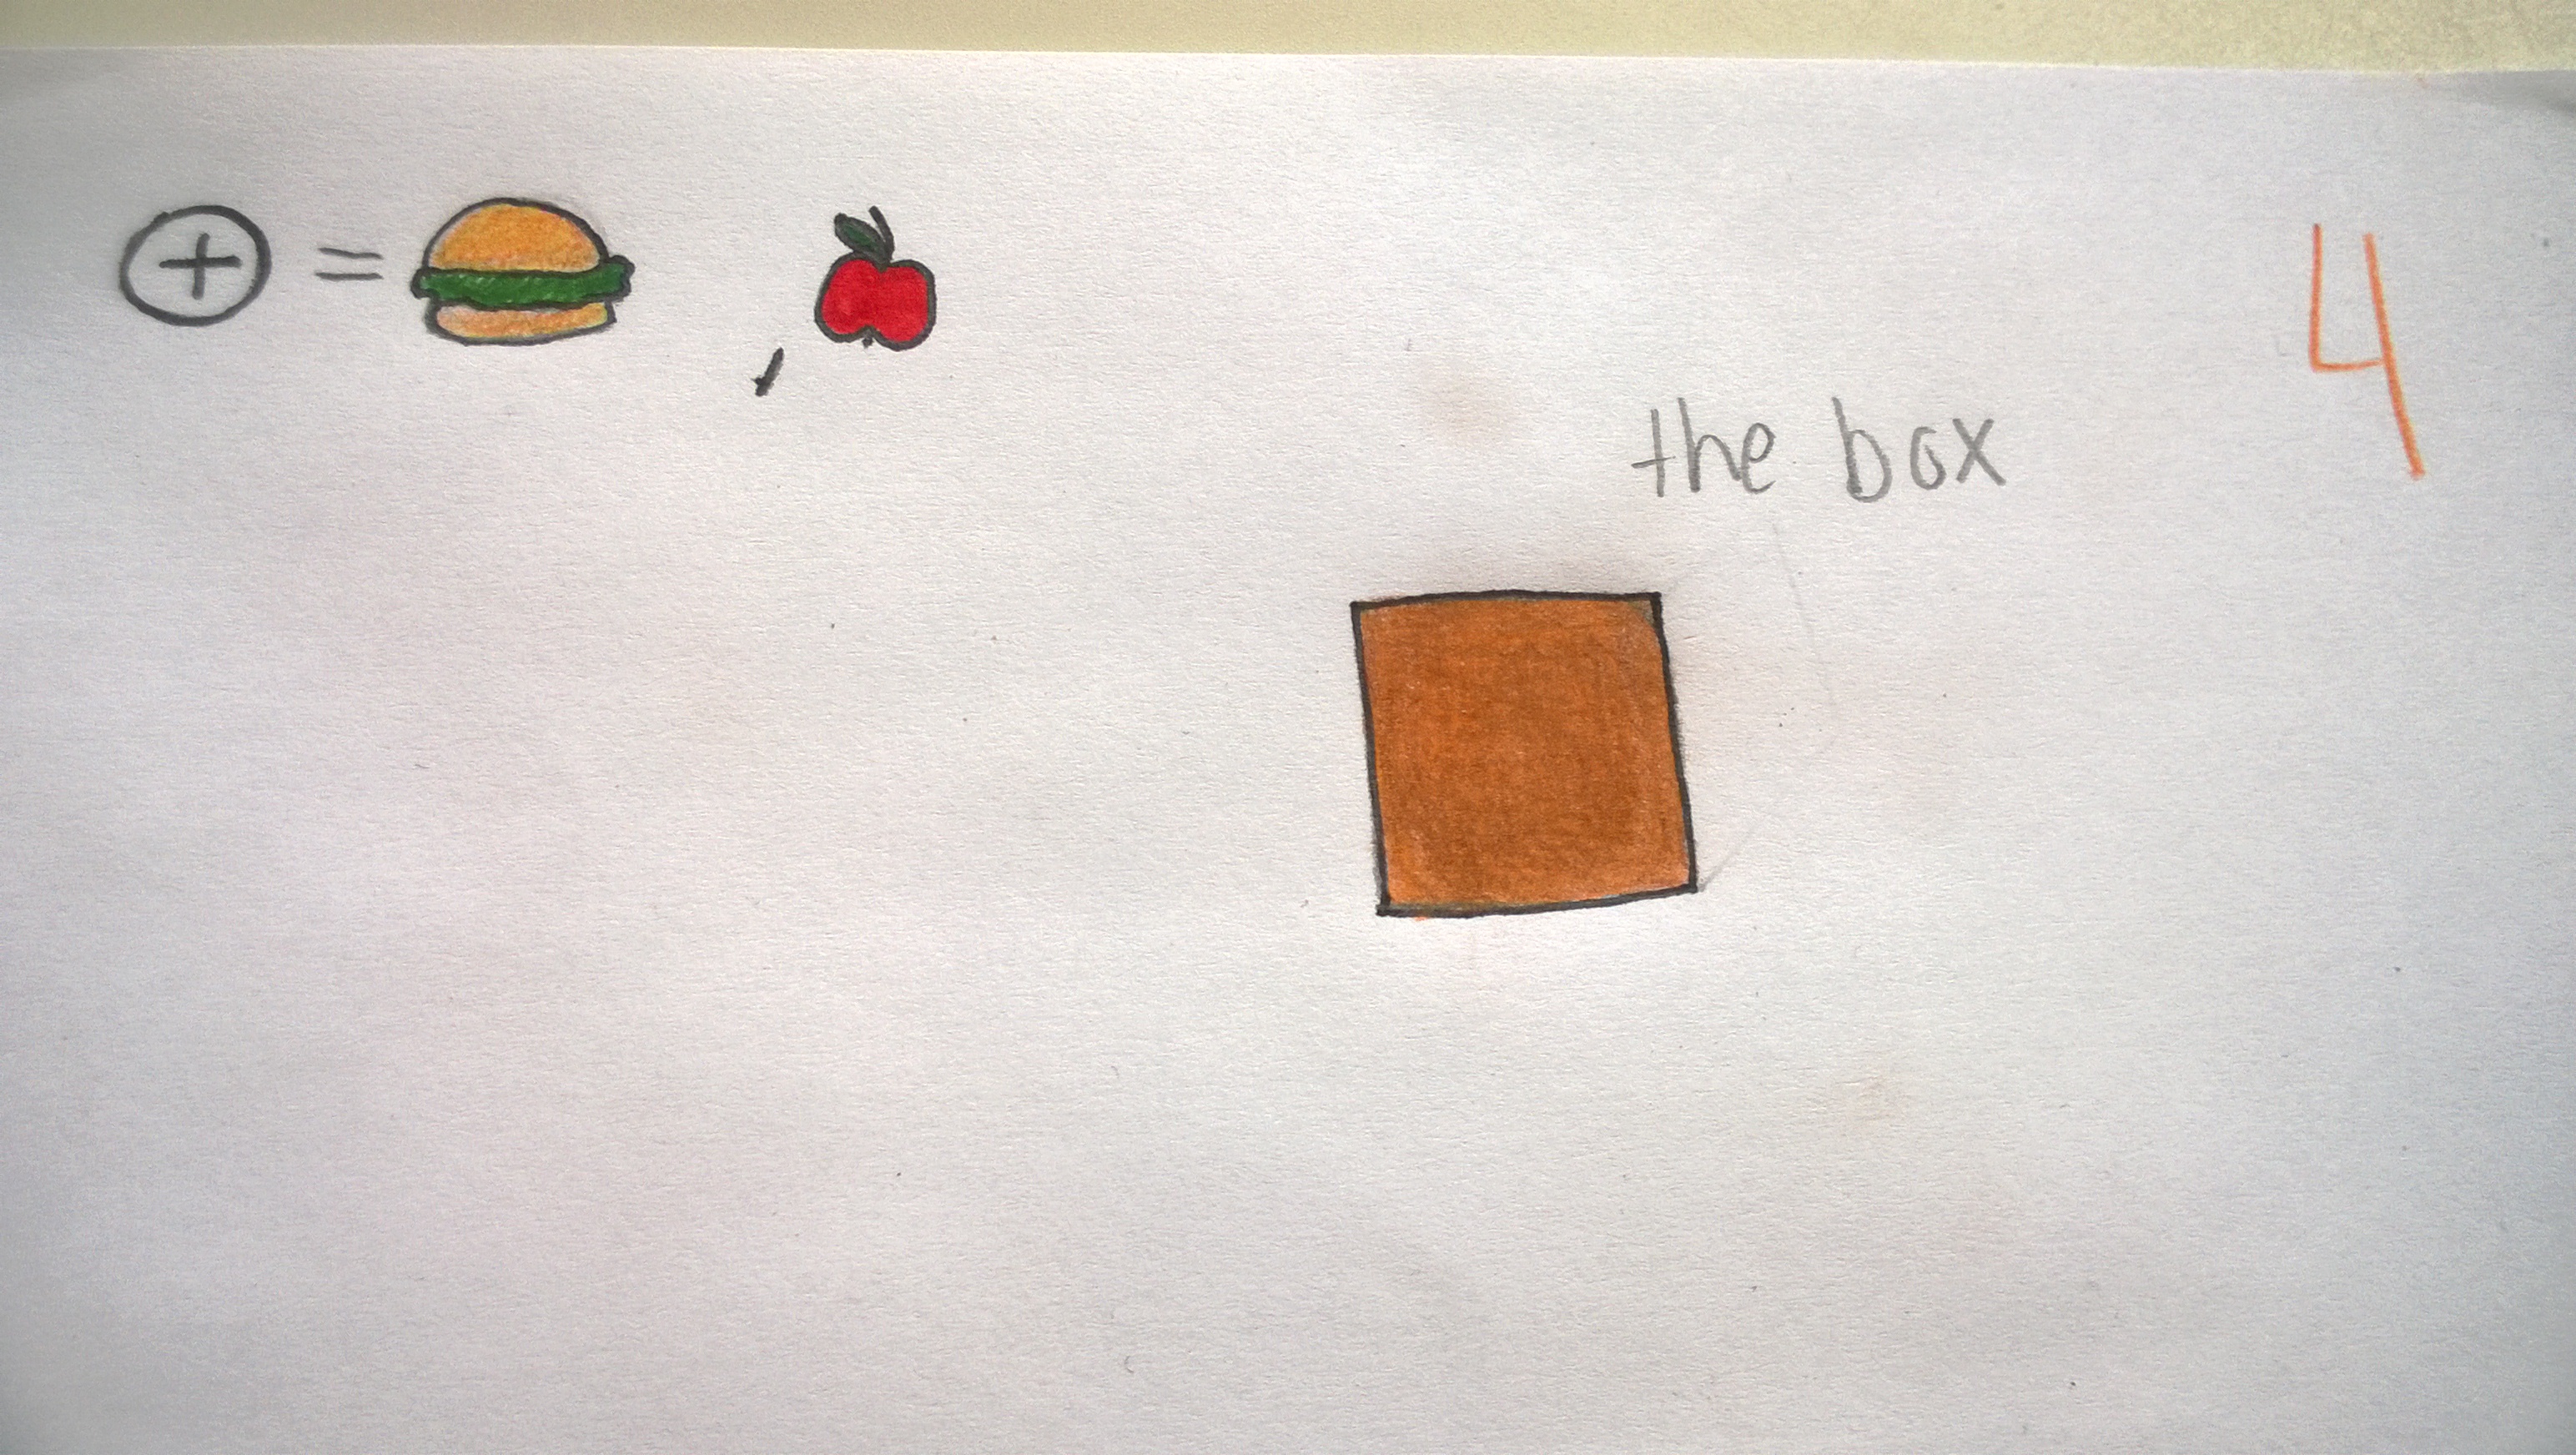 + = ,
4
the box